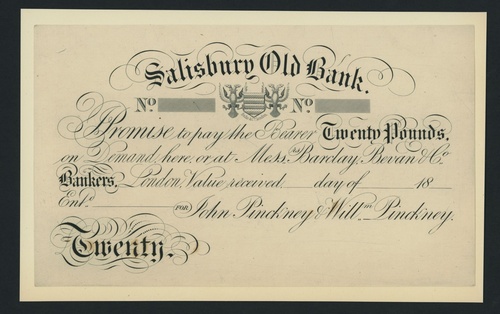 Salisbury Old Bank.
No No
Promise to pay the Bearer Twenty Pounds.
on Demand, here, or at Messrs. Barclay, Bevan & Co.
Bankers, London, Value received day of 18
Entd. FOR John Pinckney & Willm. Pinckney.
Twenty.